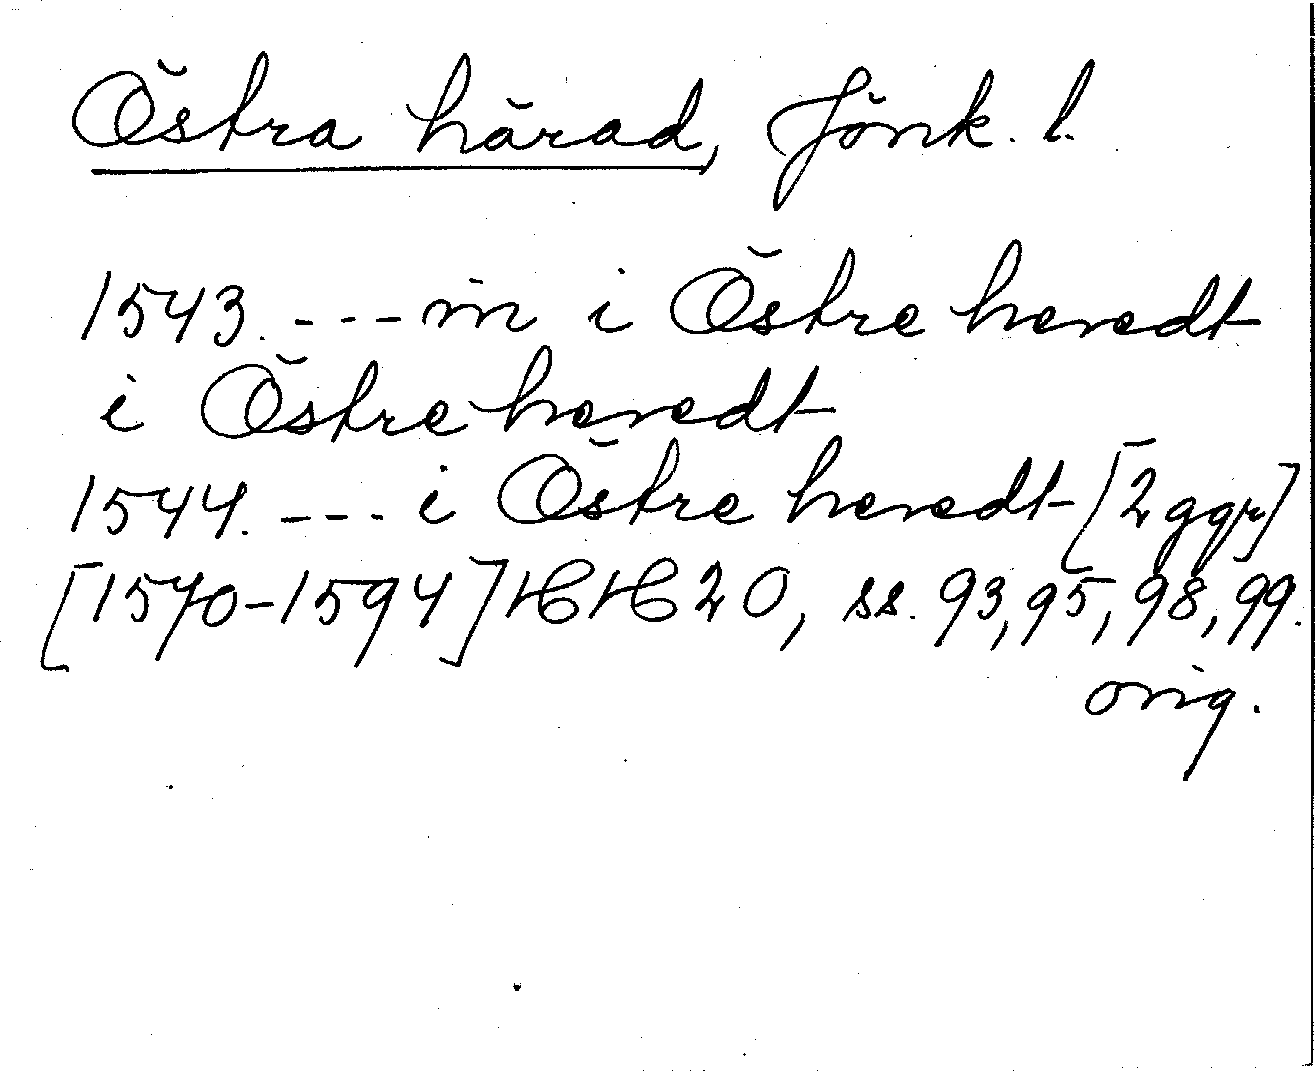 Östra härad, Jönk. l.
1543. --- in i Östre heredt
i Östre heredt
1544. --- i Östre heredt [2 ggr]
[1570-1594] HH 20, ss. 93, 95, 98, 99.
orig.